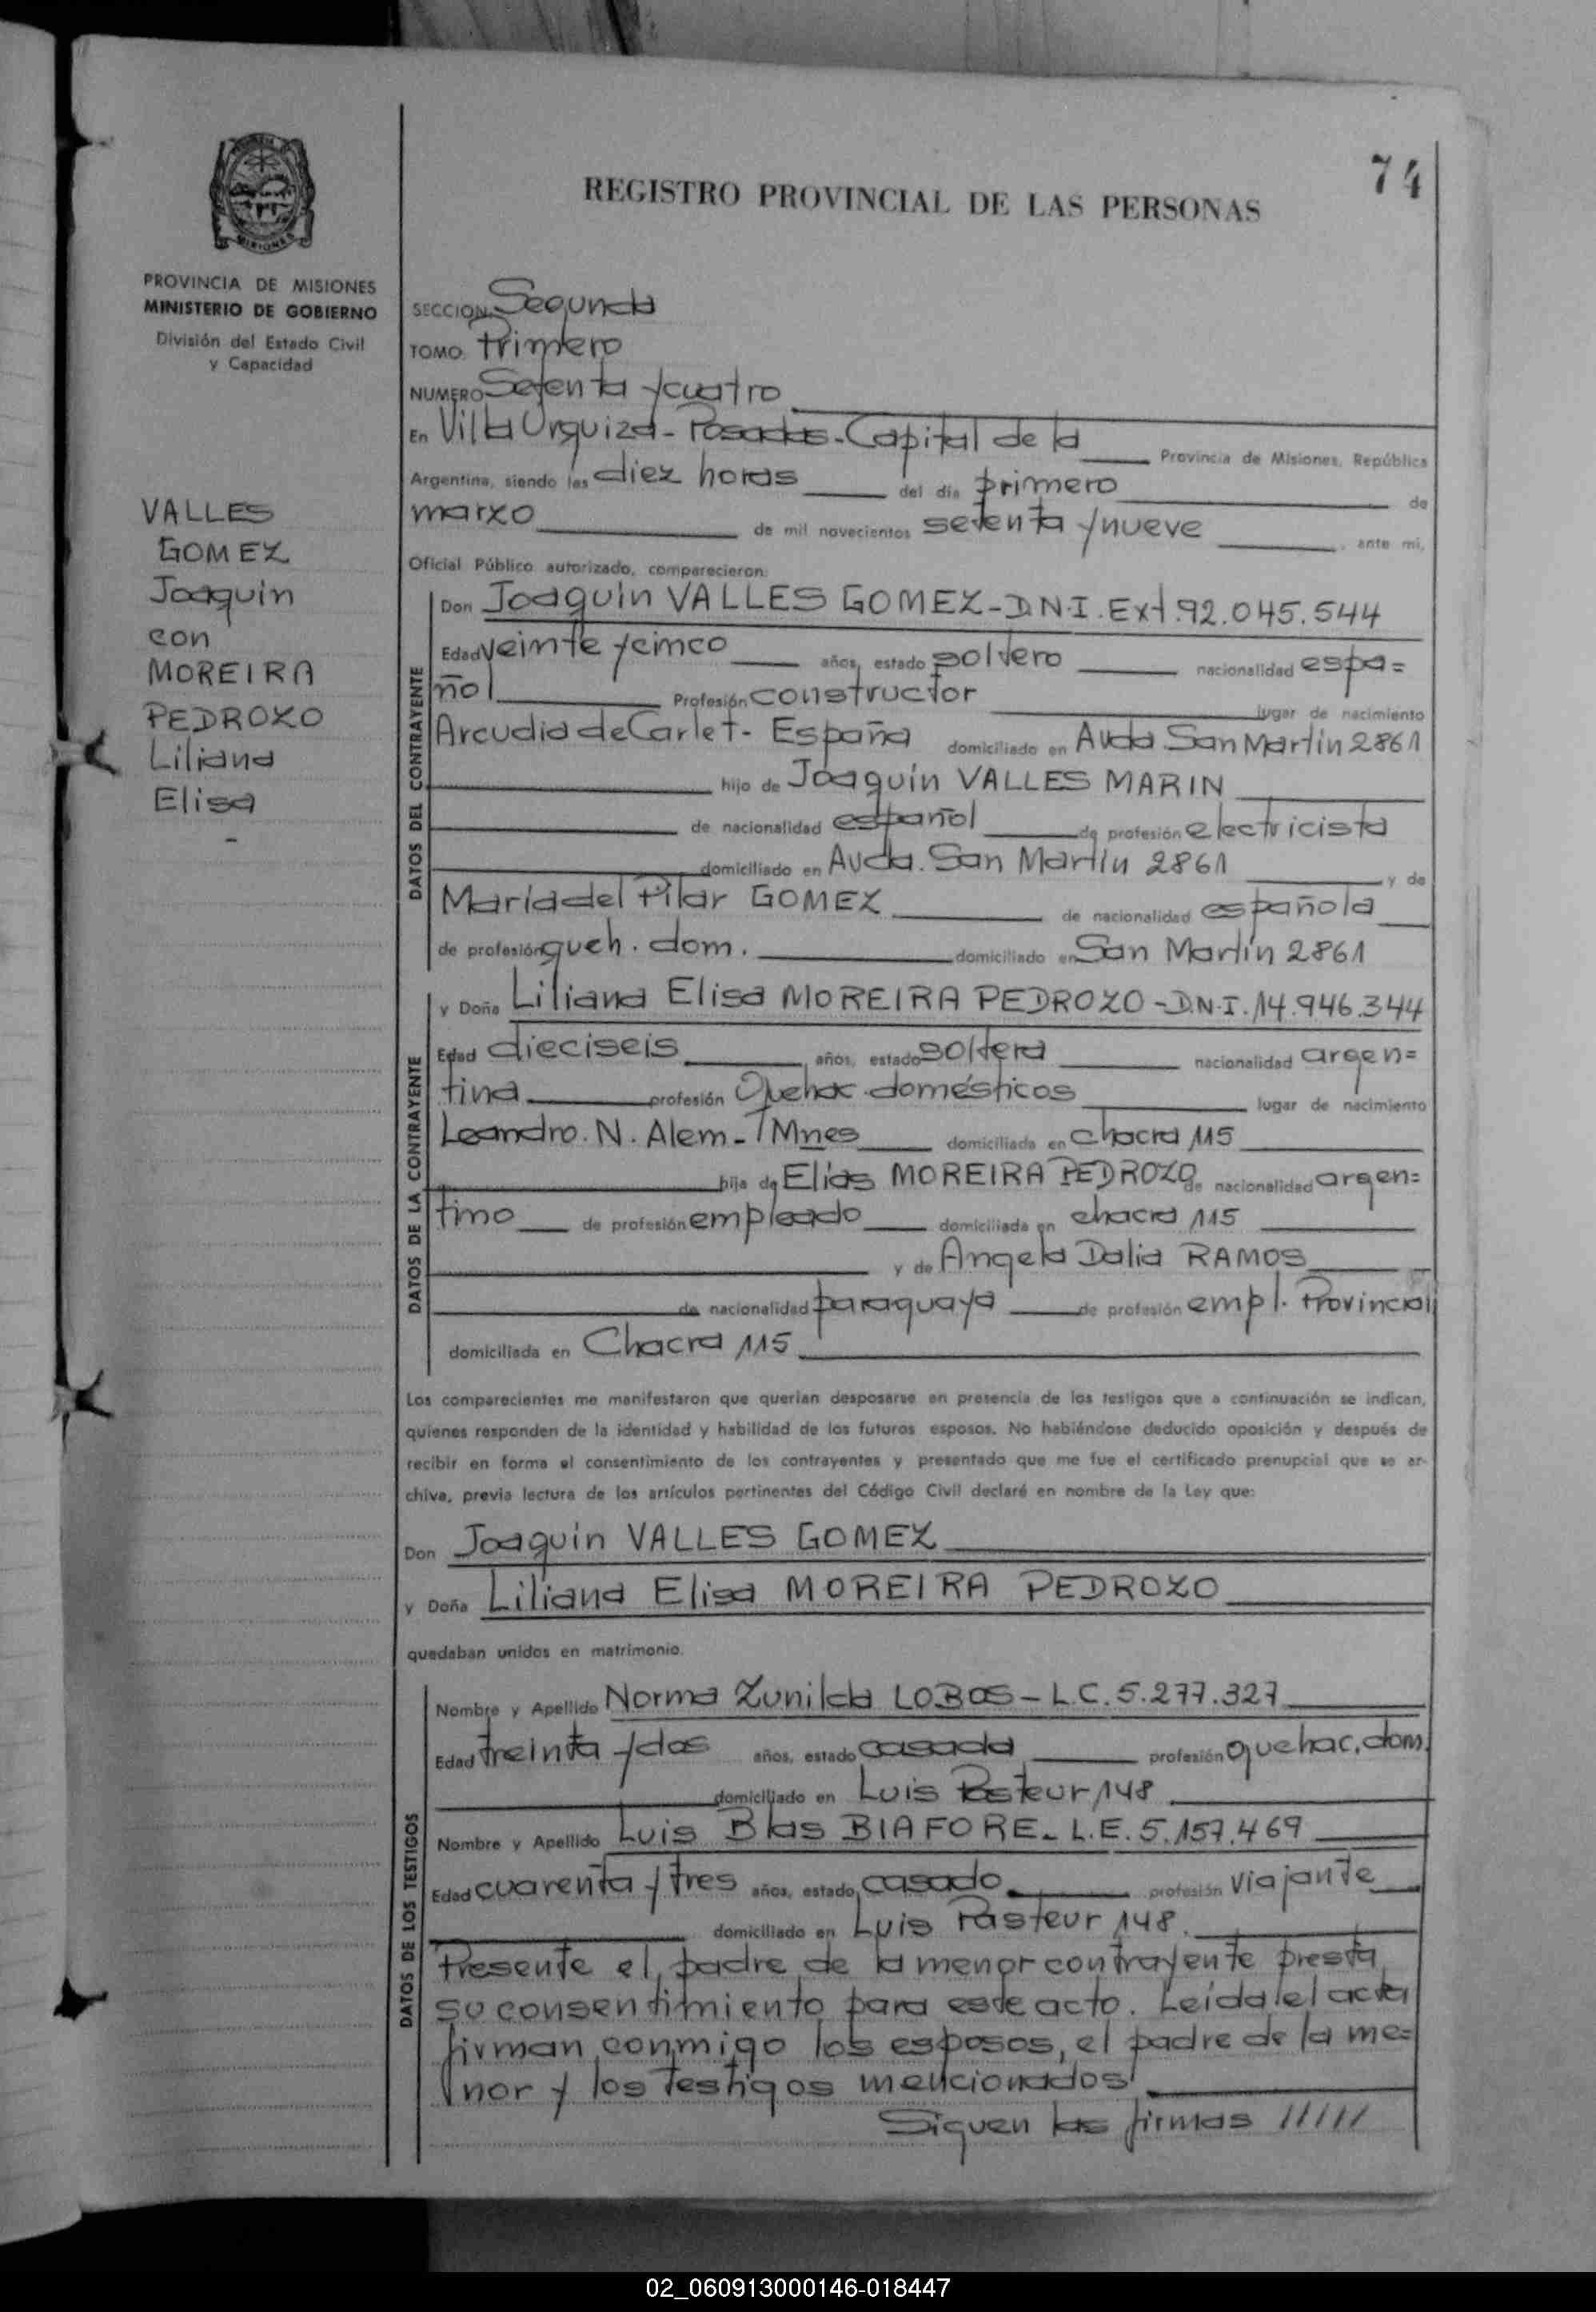 74
REGISTRO PROVINCIAL DE LAS PERSONAS
MISIONES
PROVINCIA DE MISIONES
MINISTERIO DE GOBIERNO
División del Estado Civil
y Capacidad
VALLES
GOMEZ
Joaquin
con
MOREIRA
PEDROZO
Liliana
Elisa
-
SECCION Segunda
TOMO Primero
NUMERO Setenta y cuatro
En Villa Urquiza - Posadas - Capital de la Provincia de Misiones, República
Argentina, siendo las diez horas del día primero de
marzo de mil novecientos setenta y nueve, ante mi,
Oficial Público autorizado, comparecieron:
DATOS DEL CONTRAYENTE
Don Joaquin VALLES GOMEZ - D.N.I. Ext. 92.045.544
Edad veinte y cinco años, estado soltero nacionalidad espa=
ñol Profesión constructor lugar de nacimiento
Arcudia de Carlet - España domiciliado en Avda. San Martin 2861
hijo de Joaquín VALLES MARIN
de nacionalidad español de profesión electricista
domiciliado en Avda. San Martín 2861 y de
María del Pilar GOMEZ de nacionalidad española
de profesión queh. dom. domiciliado en San Martín 2861
DATOS DE LA CONTRAYENTE
y Doña Liliana Elisa MOREIRA PEDROZO - D.N.I. 14.946.344
Edad dieciseis años, estado soltera nacionalidad argen=
tina profesión Quehac. domésticos lugar de nacimiento
Leandro. N. Alem - Mnes domiciliada en chacra 115
hija de Elias MOREIRA PEDROZO de nacionalidad argen=
tino de profesión empleado domiciliada en chacra 115
y de Angela Dalia RAMOS
de nacionalidad paraguaya de profesión empl. Provincial
domiciliada en Chacra 115
Los comparecientes me manifestaron que querían desposarse en presencia de los testigos que a continuación se indican,
quienes responden de la identidad y habilidad de los futuros esposos. No habiéndose deducido oposición y después de
recibir en forma el consentimiento de los contrayentes y presentado que me fue el certificado prenupcial que se ar-
chiva, previa lectura de los artículos pertinentes del Código Civil declaré en nombre de la Ley que:
Don Joaquin VALLES GOMEZ
y Doña Liliana Elisa MOREIRA PEDROZO
quedaban unidos en matrimonio.
DATOS DE LOS TESTIGOS
Nombre y Apellido Norma Zunilda LOBOS - L.C. 5.277.327
Edad treinta y dos años, estado casada profesión quehac. dom.
domiciliado en Luis Pasteur 148
Nombre y Apellido Luis Blas BIAFORE - L.E. 5.157.469
Edad cuarenta y tres años, estado casado profesión viajante
domiciliado en Luis Pasteur 148.
Presente el padre de la menor contrayente presta
su consentimiento para este acto. Leída el acta
firman conmigo los esposos, el padre de la me=
nor y los testigos mencionados
Siguen las firmas /////
02_060913000146-018447